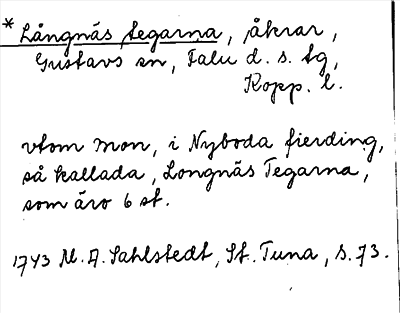 * Långnäs tegarna, åkrar,
Gustavs sn, Falu d. s. tg,
Kopp. l.
vtom mon, i Nyboda fierding,
så kallada, Longnäs Tegarna,
som äro 6 st.
1743 M. A. Sahlstedt, St. Tuna, s. 73.